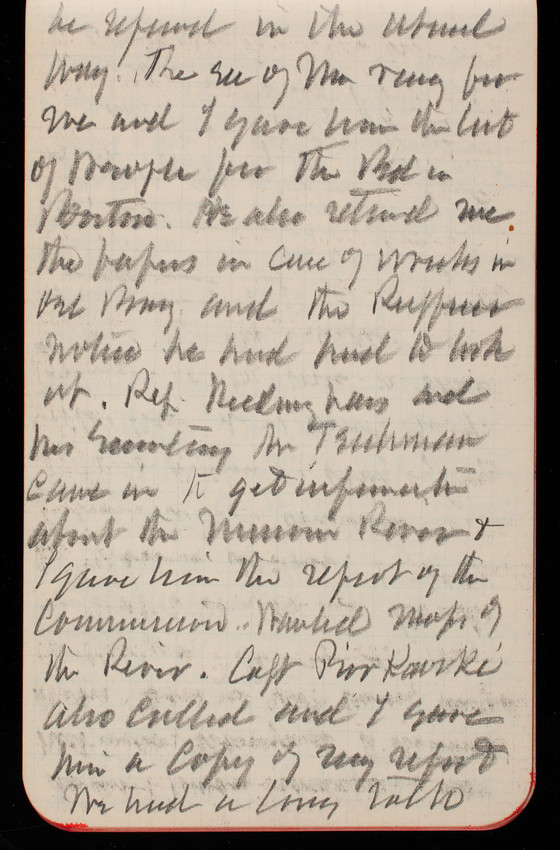 be refused in the usual
way. The Sec of War rang for
me and I gave him the list
of people for the Bd in
Boston. He also returned me
the papers in case of wrecks in
and the
notice he had had to look
at. Rep. and
his Secretary Mr
came in to get information
about the Missouri River &
I gave him the report of the
Commission. Wanted maps of
the River. Capt
also called and I gave
him a copy of my report
We had a long talk